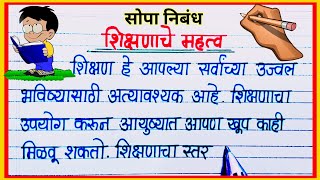 सोपा निबंध
शिक्षणाचे महत्व
शिक्षण हे आपल्या सर्वांच्या उज्वल
भविष्यासाठी अत्यावश्यक आहे. शिक्षणाचा
उपयोग करून आयुष्यात आपण खूप काही
मिळवू शकतो. शिक्षणाचा स्तर